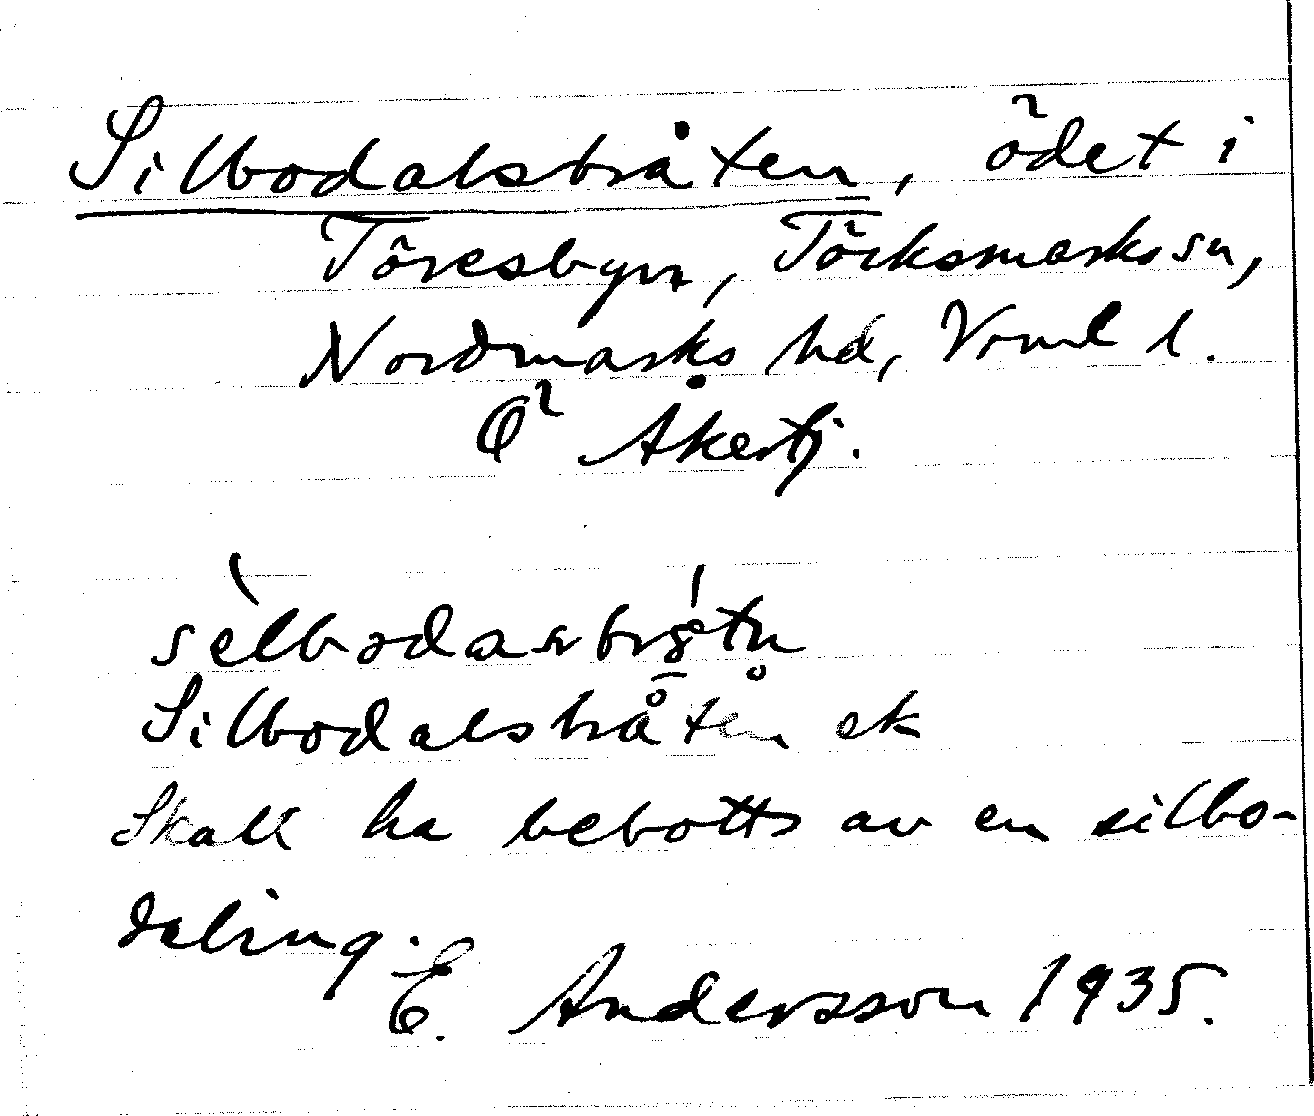 Silbodalsbråten, ödet i
Töresbyn, Töcksmarks sn,
Nordmarks hd, Vrml l.
Ö Åkertj.
sèlbodasbrǻtn̥
Silbodalsbråten ek
Skall ha bebotts av en silbo-
daling.
E. Andersson 1935.